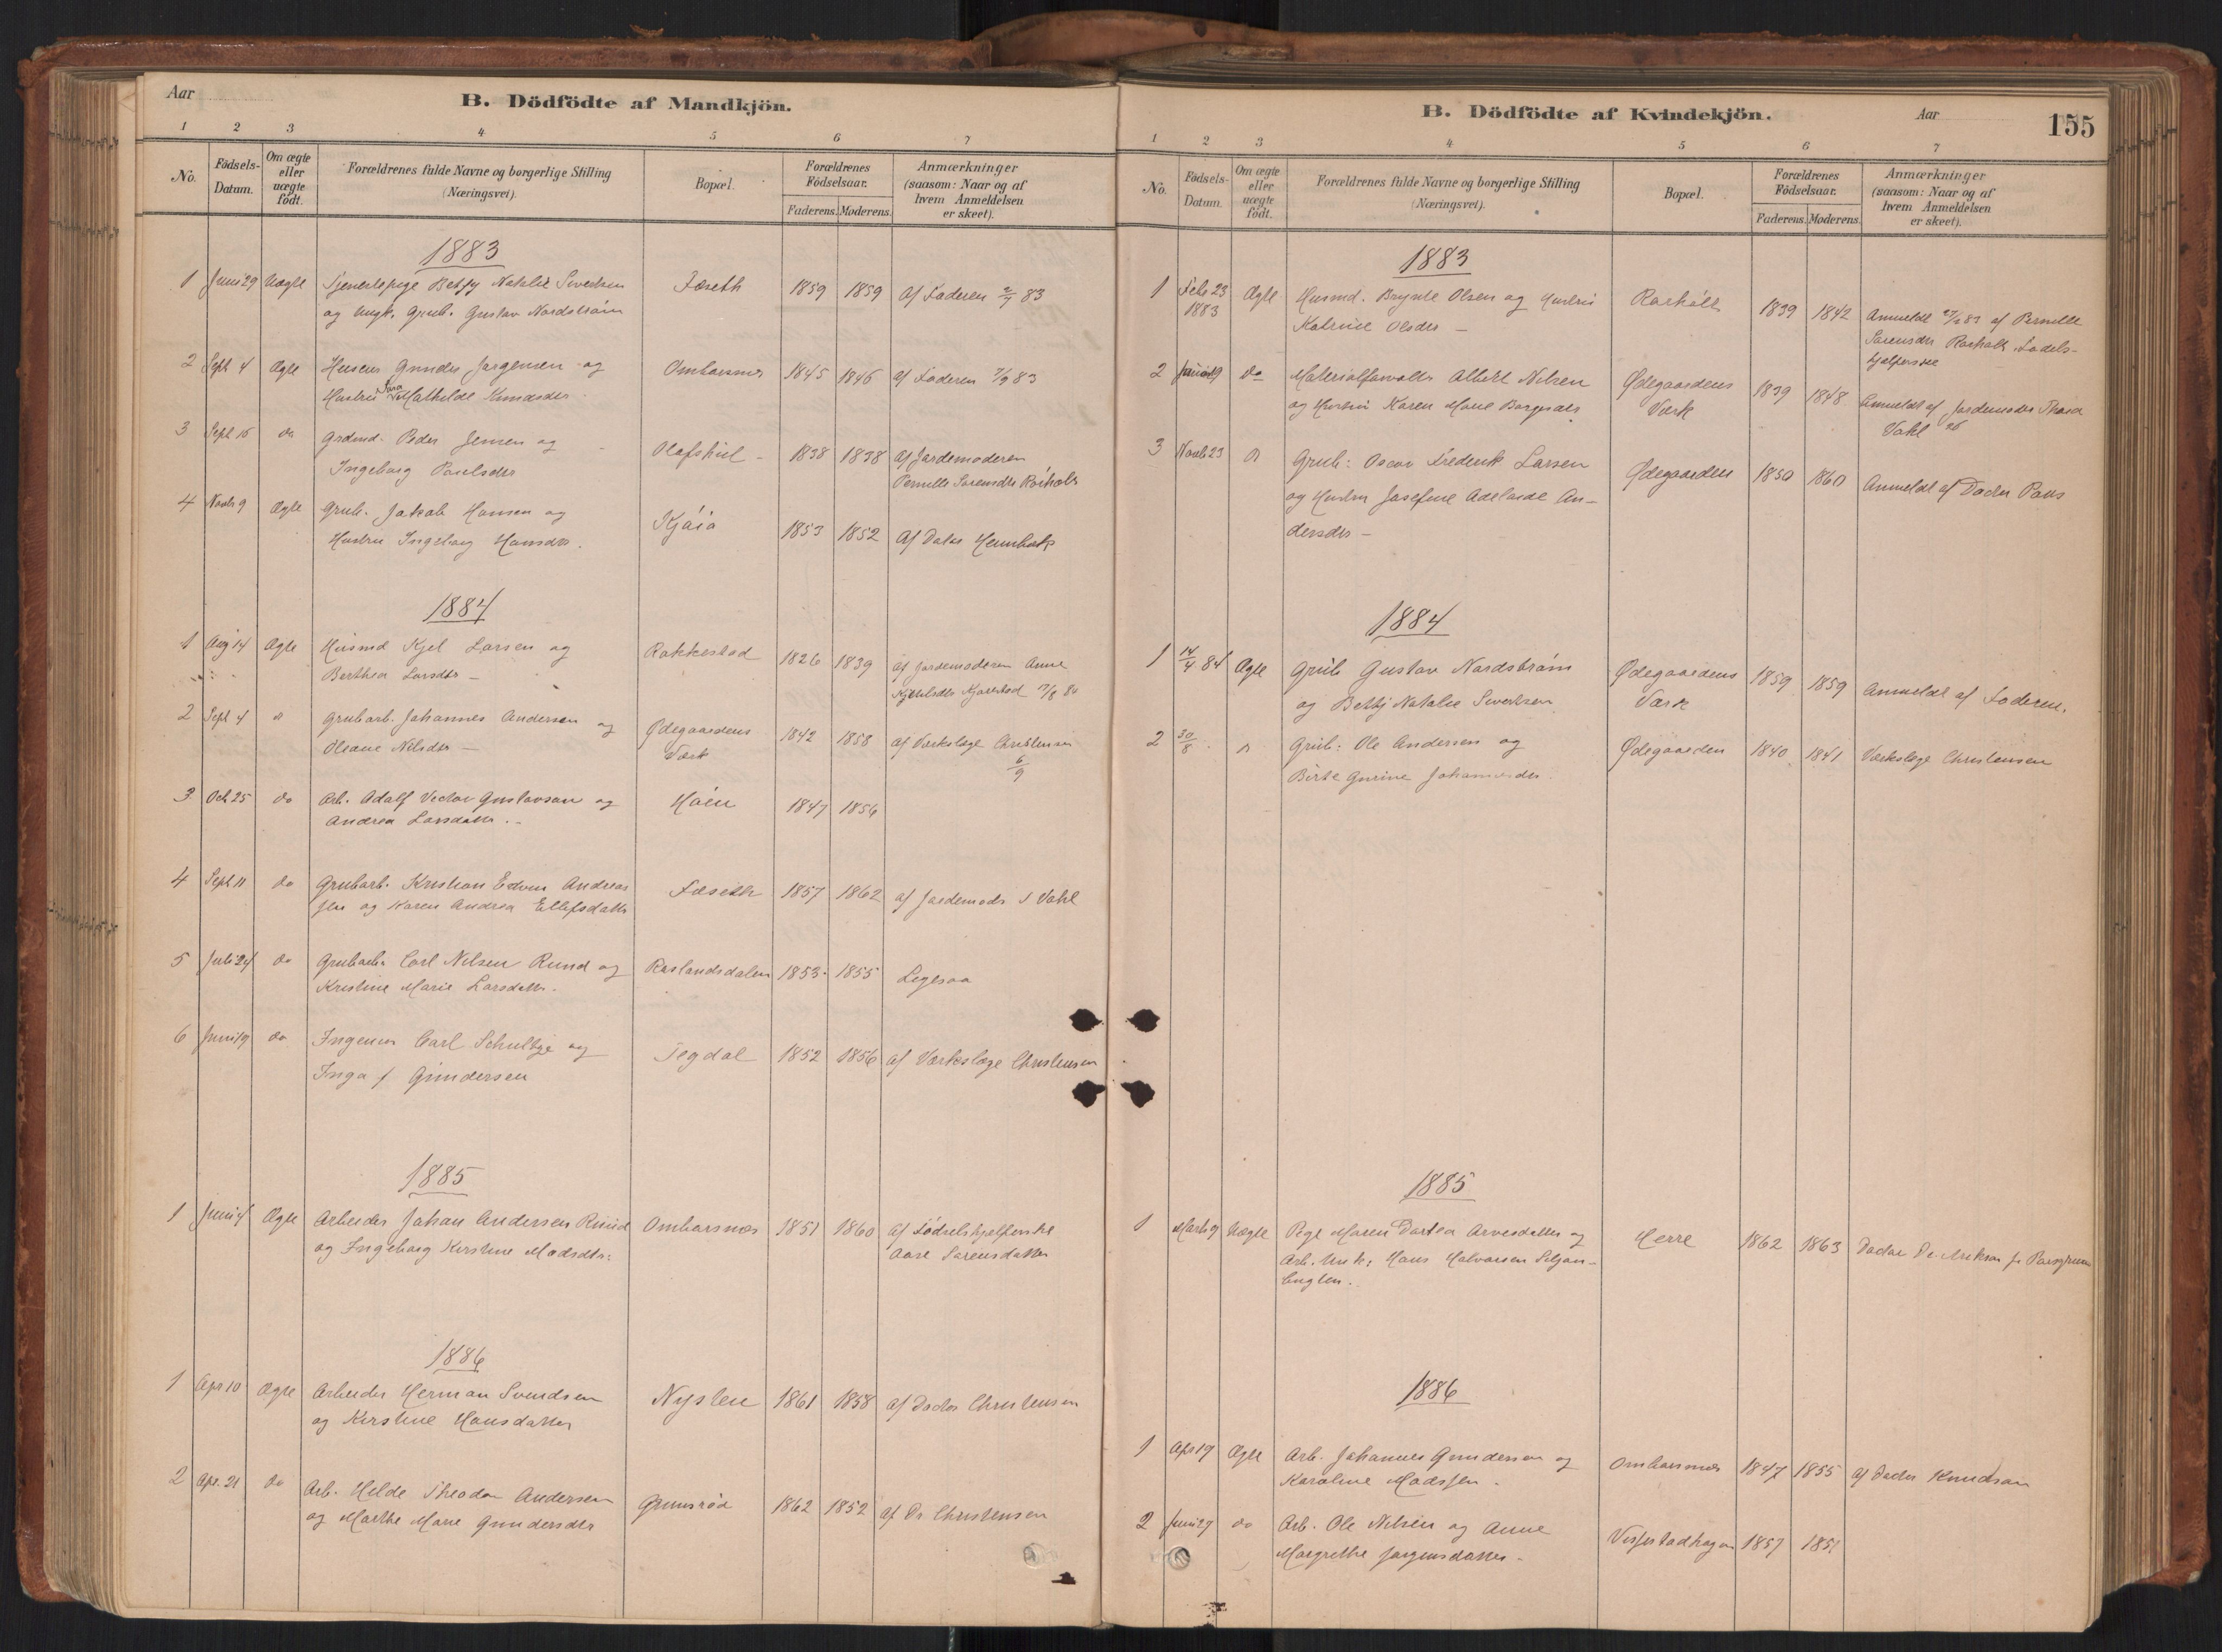 Aar
B. Dödfödte af Mandkjön.
1 2 3 4 5 6 7
No.
Födsels-Datum.
Om ægte eller uægte født.
Forældrenes fulde Navne og borgerlige Stilling (Næringsvei).
Bopæl.
Forældrenes Födselsaar.
Faderens. Moderens.
Anmærkninger (saasom: Naar og af hvem Anmeldelsen er skeet).
1883
1 Juni 29 Uægte Tjenestepige Betzy Natalie Sivertsen Fæseth 1859 1859 af Faderen 2/7 83
og Ungk. Grub. Gustav Nordström
2 Sept 4 Ægte Huseier Gunder Jørgensen og Ombarsnes 1845 1846 af Faderen 7/9 83
Hustru Mathilde Knudsdtr
3 Sept 16 do Grdmd. Peder Jensen og Olafskul 1838 1838 af Jordemoderen
Ingeborg Poulsdtr Pernille Sørensdtr Rørholt
4 Novb 9 Ægte Grub. Jakob Hansen og Kjøia 1853 1852 Af Doktor
Hustru Ingeborg Hansdtr.
1884
1 Aug 14 Ægte Husmd Kjel Larsen og Rakkestad 1826 1839 af Jordemoderen Anne
Berthea Larsdtr Kjeldsdtr
2 Sept 4 Grubarb. Johannes Andersen og Ødegaardens 1842 1858 af Værkslæge Christensen
Oleane Nilsdtr Værk 6/9
3 Oct 25 do Arb. Adolf Victor Gustavson og Høien 1847 1856
Andrea Larsdatter
4 Sept 11 do Grubarb. Kristian Edvin Andreas Fæseth 1857 1862 af Jordemoder Vahl
sen og Karen Andrea Ellefsdatter
5 Juli 24 do Grubarb. Carl Nilsen Rund og Røslandsdalen 1853 1855 Ligesaa
Kristine Marie Larsdatter
6 Juni 19 do Ingeniør Carl Schultze og Tegdal 1852 1856 af Værkslæge Christensen
Inga f Gundersen
1885
1 Juni 4 Ægte Arbeider Johan Andersen Ruud Ombarsnæs 1851 1860 af Födselshjelperske
og Ingeborg Kirstine Madsdtr. Aase Sørensdatter
1886
1 Apr 10 Ægte Arbeider Herman Svendsen Nysten 1861 1858 af Doctor Christensen
og Kirstine Hansdatter
2 Apr. 21 do Arb. Helde Theodor Andersen Grumsrød 1862 1852 af Dr Christensen
og Marthe Marie Gundersdtr
B. Dödfödte af Kvindekjön.
Aar
155
1 2 3 4 5 6 7
No.
Födsels-Datum.
Om ægte eller uægte födt.
Forældrenes fulde Navne og borgerlige Stilling (Næringsvei).
Bopæl.
Forældrenes Födselsaar.
Faderens. Moderens.
Anmærkninger (saasom: Naar og af hvem Anmeldelsen er skeet).
1883
1 Feb 23 1883 Ægte Husmd. Brynte Olsen og Hustru Rørholt 1839 1842 Anmeldt af Pernille
Katrine Olsdtr Sørensdtr Rørholt, Fødels-
hjelperske
2 Juni 19 do Materialforvalter Albert Nilsen Ødegaardens 1839 1848 Anmeldt af Jordemoder Thora
og Hustru Karen Marie Værk Vahl
3 Novb 23 Grub: Oscar Frederik Larsen Ødegaarden 1850 1860 Anmeldt af Doctor Paus
og Hustru Josefine Adelaide An-
dersdtr
1884
1 14/4 84 Ægte Grub Gustav Nordström Ødegaardens 1859 1859 Anmeldt af Faderen.
og Betty Natalie Sivertsen Værk
2 30/8 Grub: Ole Andersen og Ødegaarden 1840 1841 Værkslæge Christensen
Birte Gurine Johannesdtr
1885
1 Marts 9 Uægte Pige Maren Dortea Arvesdatter og Herre 1862 1863 Doctor
Arb. Unk: Hans Halvorsen
1886
1 Apr 17 Ægte Arb. Johannes Gundersen og Ombarsnes 1847 1855 af Doctor Knudson
Karoline Madssen
2 Juni 29 do Arb. Ole Nilsen og Anne Vissestadhagen 1857 1851
Margrethe Jørgensdatter